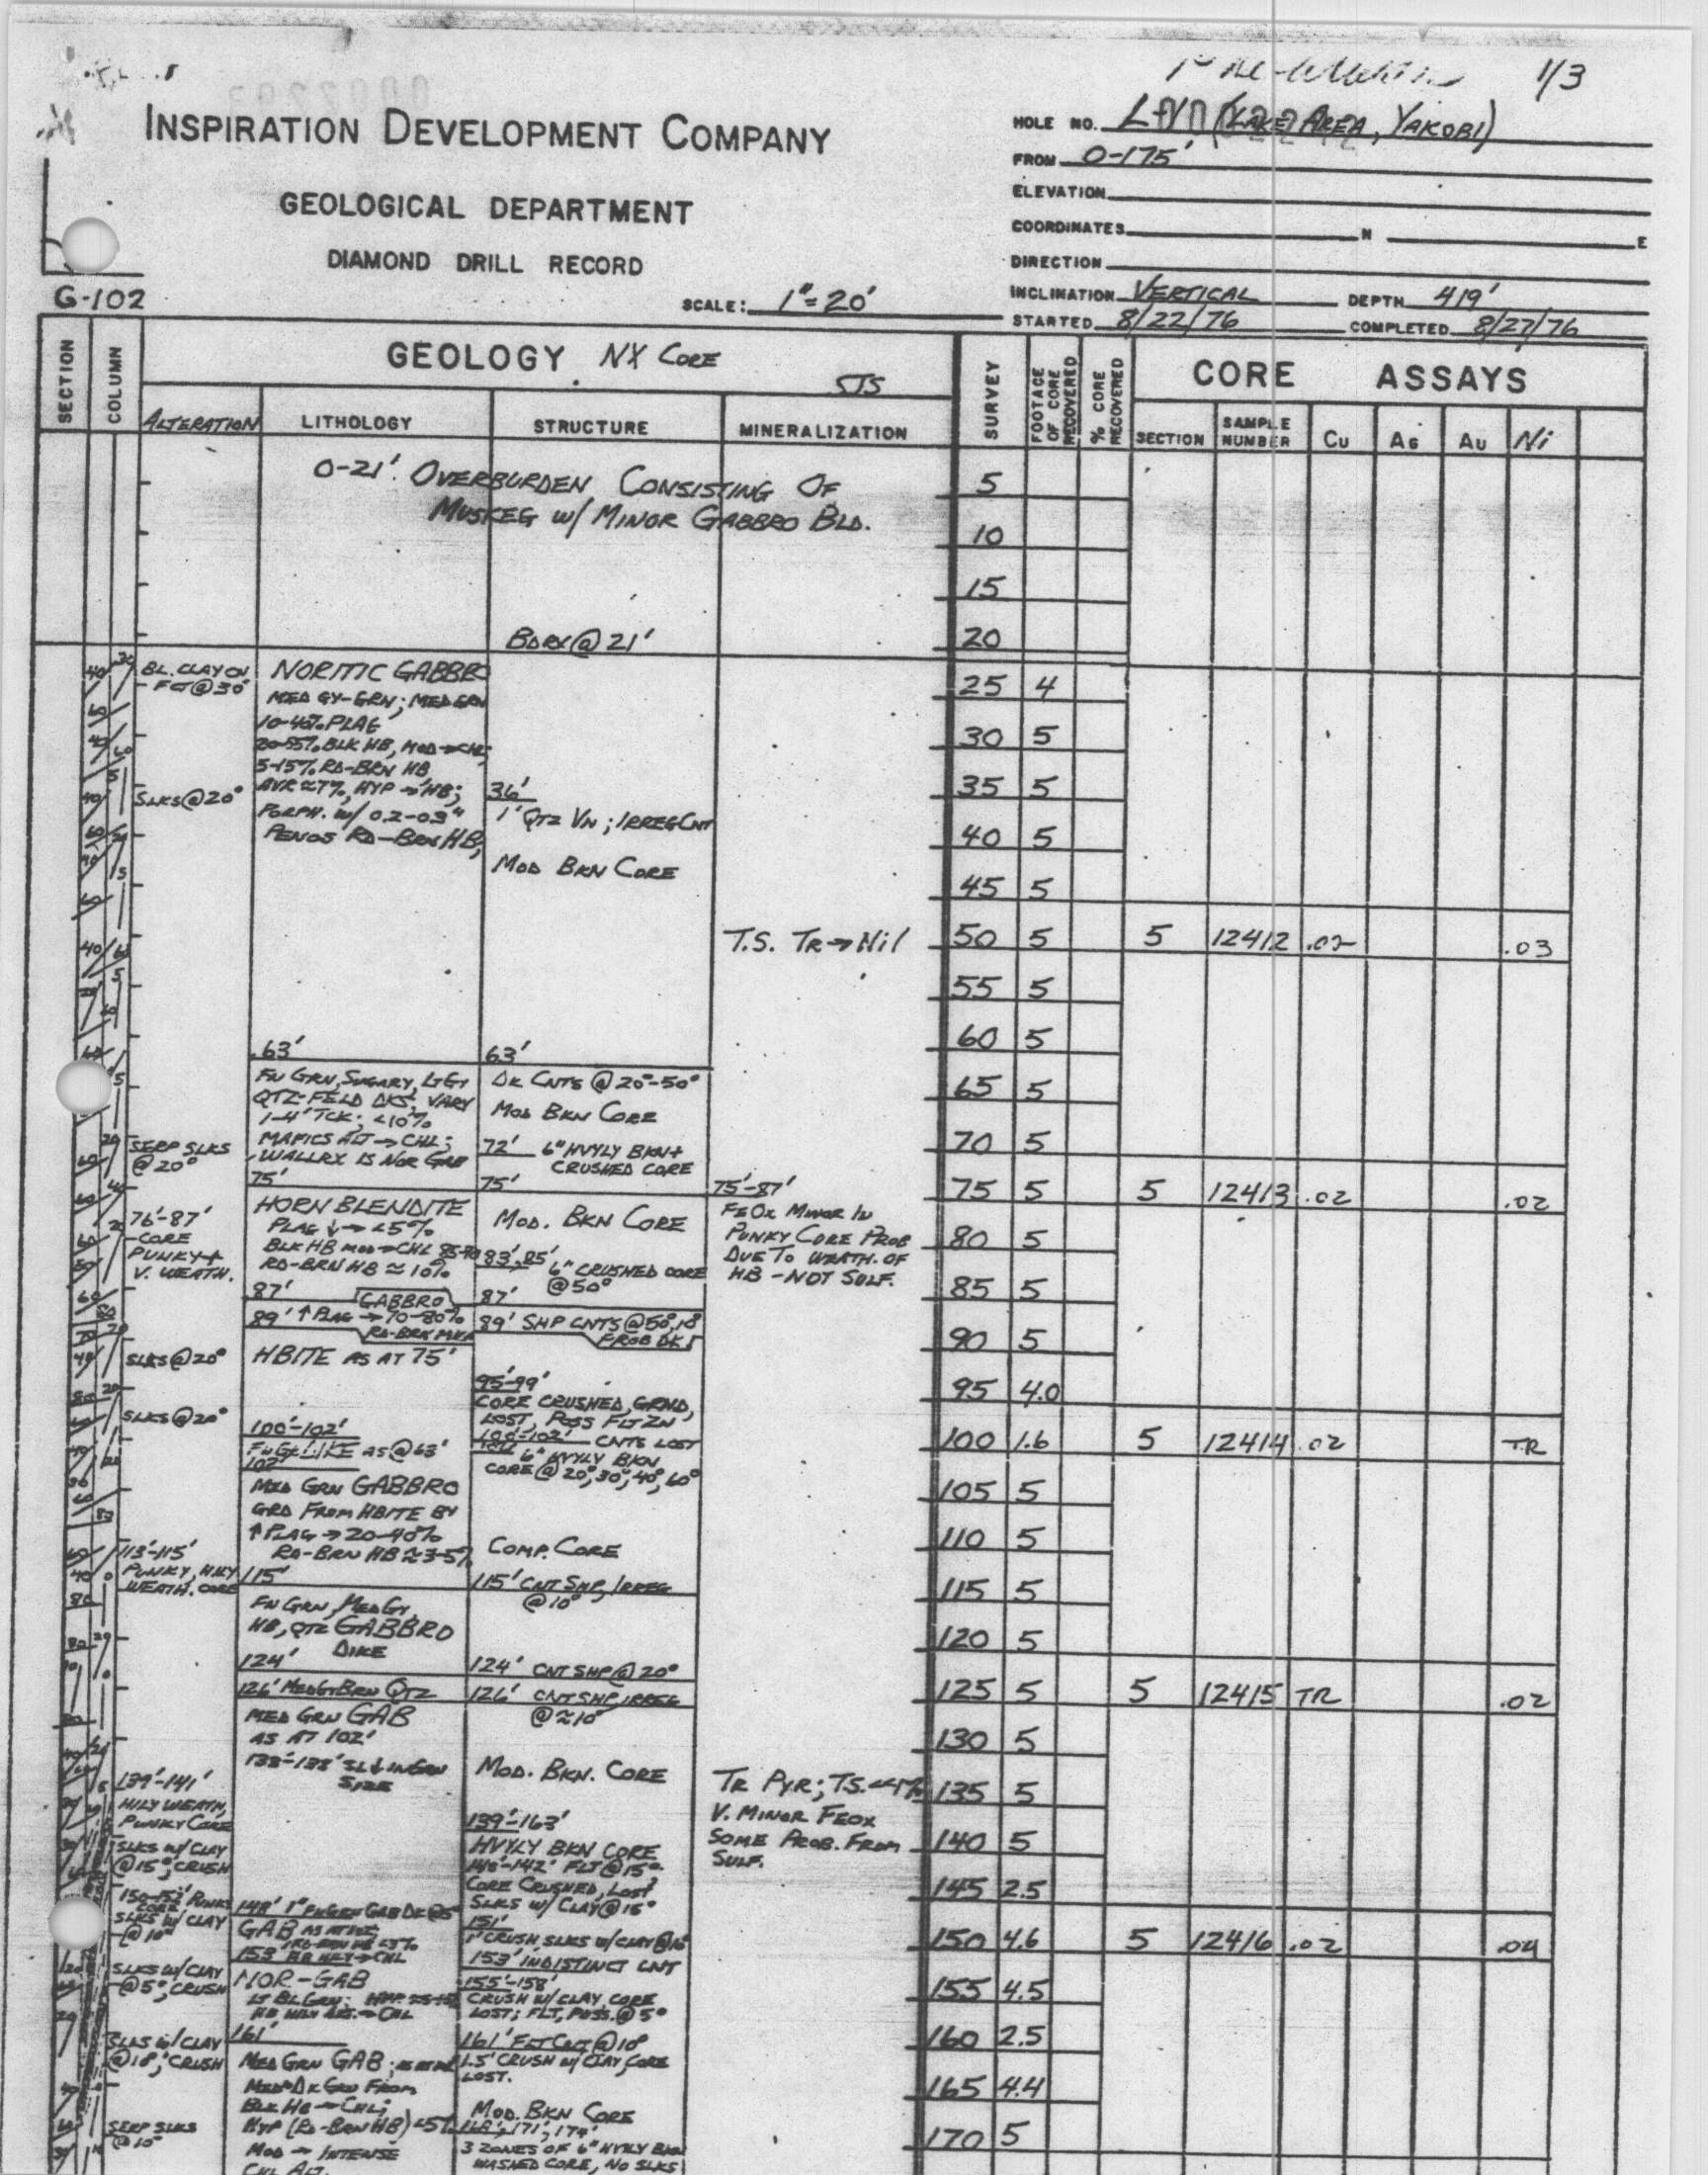 1/3
INSPIRATION DEVELOPMENT COMPANY
GEOLOGICAL DEPARTMENT
DIAMOND DRILL RECORD
G-102
SCALE: 1"=20'
HOLE NO. (LAKE AREA, YAKOBI)
FROM 0-175'
ELEVATION
COORDINATES N E
DIRECTION
INCLINATION VERTICAL DEPTH 419'
STARTED 8/22/76 COMPLETED 8/27/76
SECTION
COLUMN
GEOLOGY NX CORE
SJS
SURVEY
FOOTAGE OF CORE RECOVERED
% CORE RECOVERED
CORE ASSAYS
ALTERATION LITHOLOGY STRUCTURE MINERALIZATION
SECTION SAMPLE NUMBER Cu AG AU Ni
0-21' OVERBURDEN CONSISTING OF
MUSKEG W/ MINOR GABBRO BLD.
BDRX @ 21'
BL. CLAY ON
FLT @ 30°
SLKS @ 20°
SERP SLKS
@ 20°
76'-87'
CORE
PUNKY +
V. WEATH.
SLKS @ 20°
SLKS @ 20°
113'-115'
PUNKY, HVY
WEATH. CORE
139'-141'
HVLY WEATH,
PUNKY CORE
SLKS W/ CLAY
@ 15°, CRUSH
SLKS W/ CLAY
@ 10°
SLKS W/ CLAY
@ 5°, CRUSH
SLKS W/ CLAY
@ 18°, CRUSH
SERP SLKS
@ 10°
NORITIC GABBRO
MED GY-GRN; MED GRN
10-40% PLAG
20-55% BLK HB, MOD → CHL;
5-15% RD-BRN HB
AVR ≈ 7%, HYP → HB;
PORPH. W/ 0.2-0.3"
PENOS RD-BRN HB;
63'
FN GRN, SUGARY, LT GY
QTZ-FELD DKS; VARY
1-4' TCK; <10%
MAFICS ALT → CHL;
WALLRX IS NOR GAB
75'
HORNBLENDITE
PLAG ↓ → <5%
BLK HB MOD → CHL
RD-BRN HB ≈ 10%
87' GABBRO
89' ↑ PLAG → 70-80%
HBITE AS AT 75'
100'-102'
LIKE AS @ 63'
102'
MED GRN GABBRO
GRD FROM HBITE BY
↑ PLAG → 20-40%
RD-BRN HB ≈ 3-5%
115'
FN GRN, MED GY,
HB, QTZ GABBRO
DIKE
124'
126' MED GY BRN QTZ
MED GRN GAB
AS AT 102'
SL ↓ IN GRN
SIZE
GAB
153'
NOR-GAB
161'
MED GRN GAB;
MED-DK GRN FROM
BLK HB → CHL;
HYP (RD-BRN HB) <5%
MOD → INTENSE
CHL ALT.
36'
1' QTZ VN; IRREG CNT
MOD BKN CORE
63'
DK CNTS @ 20°-50°
MOD BKN CORE
72' 6" HVYLY BKN +
CRUSHED CORE
75'
MOD. BKN CORE
83', 85'
6" CRUSHED CORE
@ 50°
87'
89' SHP CNTS @ 50°, 10°
PROB DK
95'-99'
CORE CRUSHED, GRND,
LOST, POSS FLT ZN
100'-102' CNTS LOST
6" HVYLY BKN
CORE @ 20°, 30°, 40°, 60°
COMP. CORE
115' CNT SHP, IRREG
@ 10°
124' CNT SHP @ 20°
126' CNT SHP, IRREG
@ ≈ 10°
MOD. BKN. CORE
139'-163'
HVYLY BKN CORE
140'-142' FLT @ 15°
CORE CRUSHED, LOST
SLKS W/ CLAY @ 15°
151'
1' CRUSH, SLKS W/ CLAY
153' INDISTINCT CNT
155'-158'
CRUSH W/ CLAY, CORE
LOST; FLT, POSS. @ 5°
161' FLT CNT @ 10°
1.5' CRUSH W/ CLAY, CORE
LOST.
MOD. BKN CORE
168', 171', 174'
3 ZONES OF 6" HVYLY BKN
WASHED CORE, NO SLKS
T.S. TR → Nil
75'-87'
FEOX MINOR IN
PUNKY CORE PROB
DUE TO WEATH. OF
HB - NOT SULF.
TR PYR; T.S.
V. MINOR FEOX
SOME PROB. FROM
SULF.
5
10
15
20
25 4
30 5
35 5
40 5
45 5
50 5 5 12412 .02 .03
55 5
60 5
65 5
70 5
75 5 5 12413 .02 .02
80 5
85 5
90 5
95 4.0
100 1.6 5 12414 .02 TR
105 5
110 5
115 5
120 5
125 5 5 12415 TR .02
130 5
135 5
140 5
145 2.5
150 4.6 5 12416 .02 .04
155 4.5
160 2.5
165 4.4
170 5